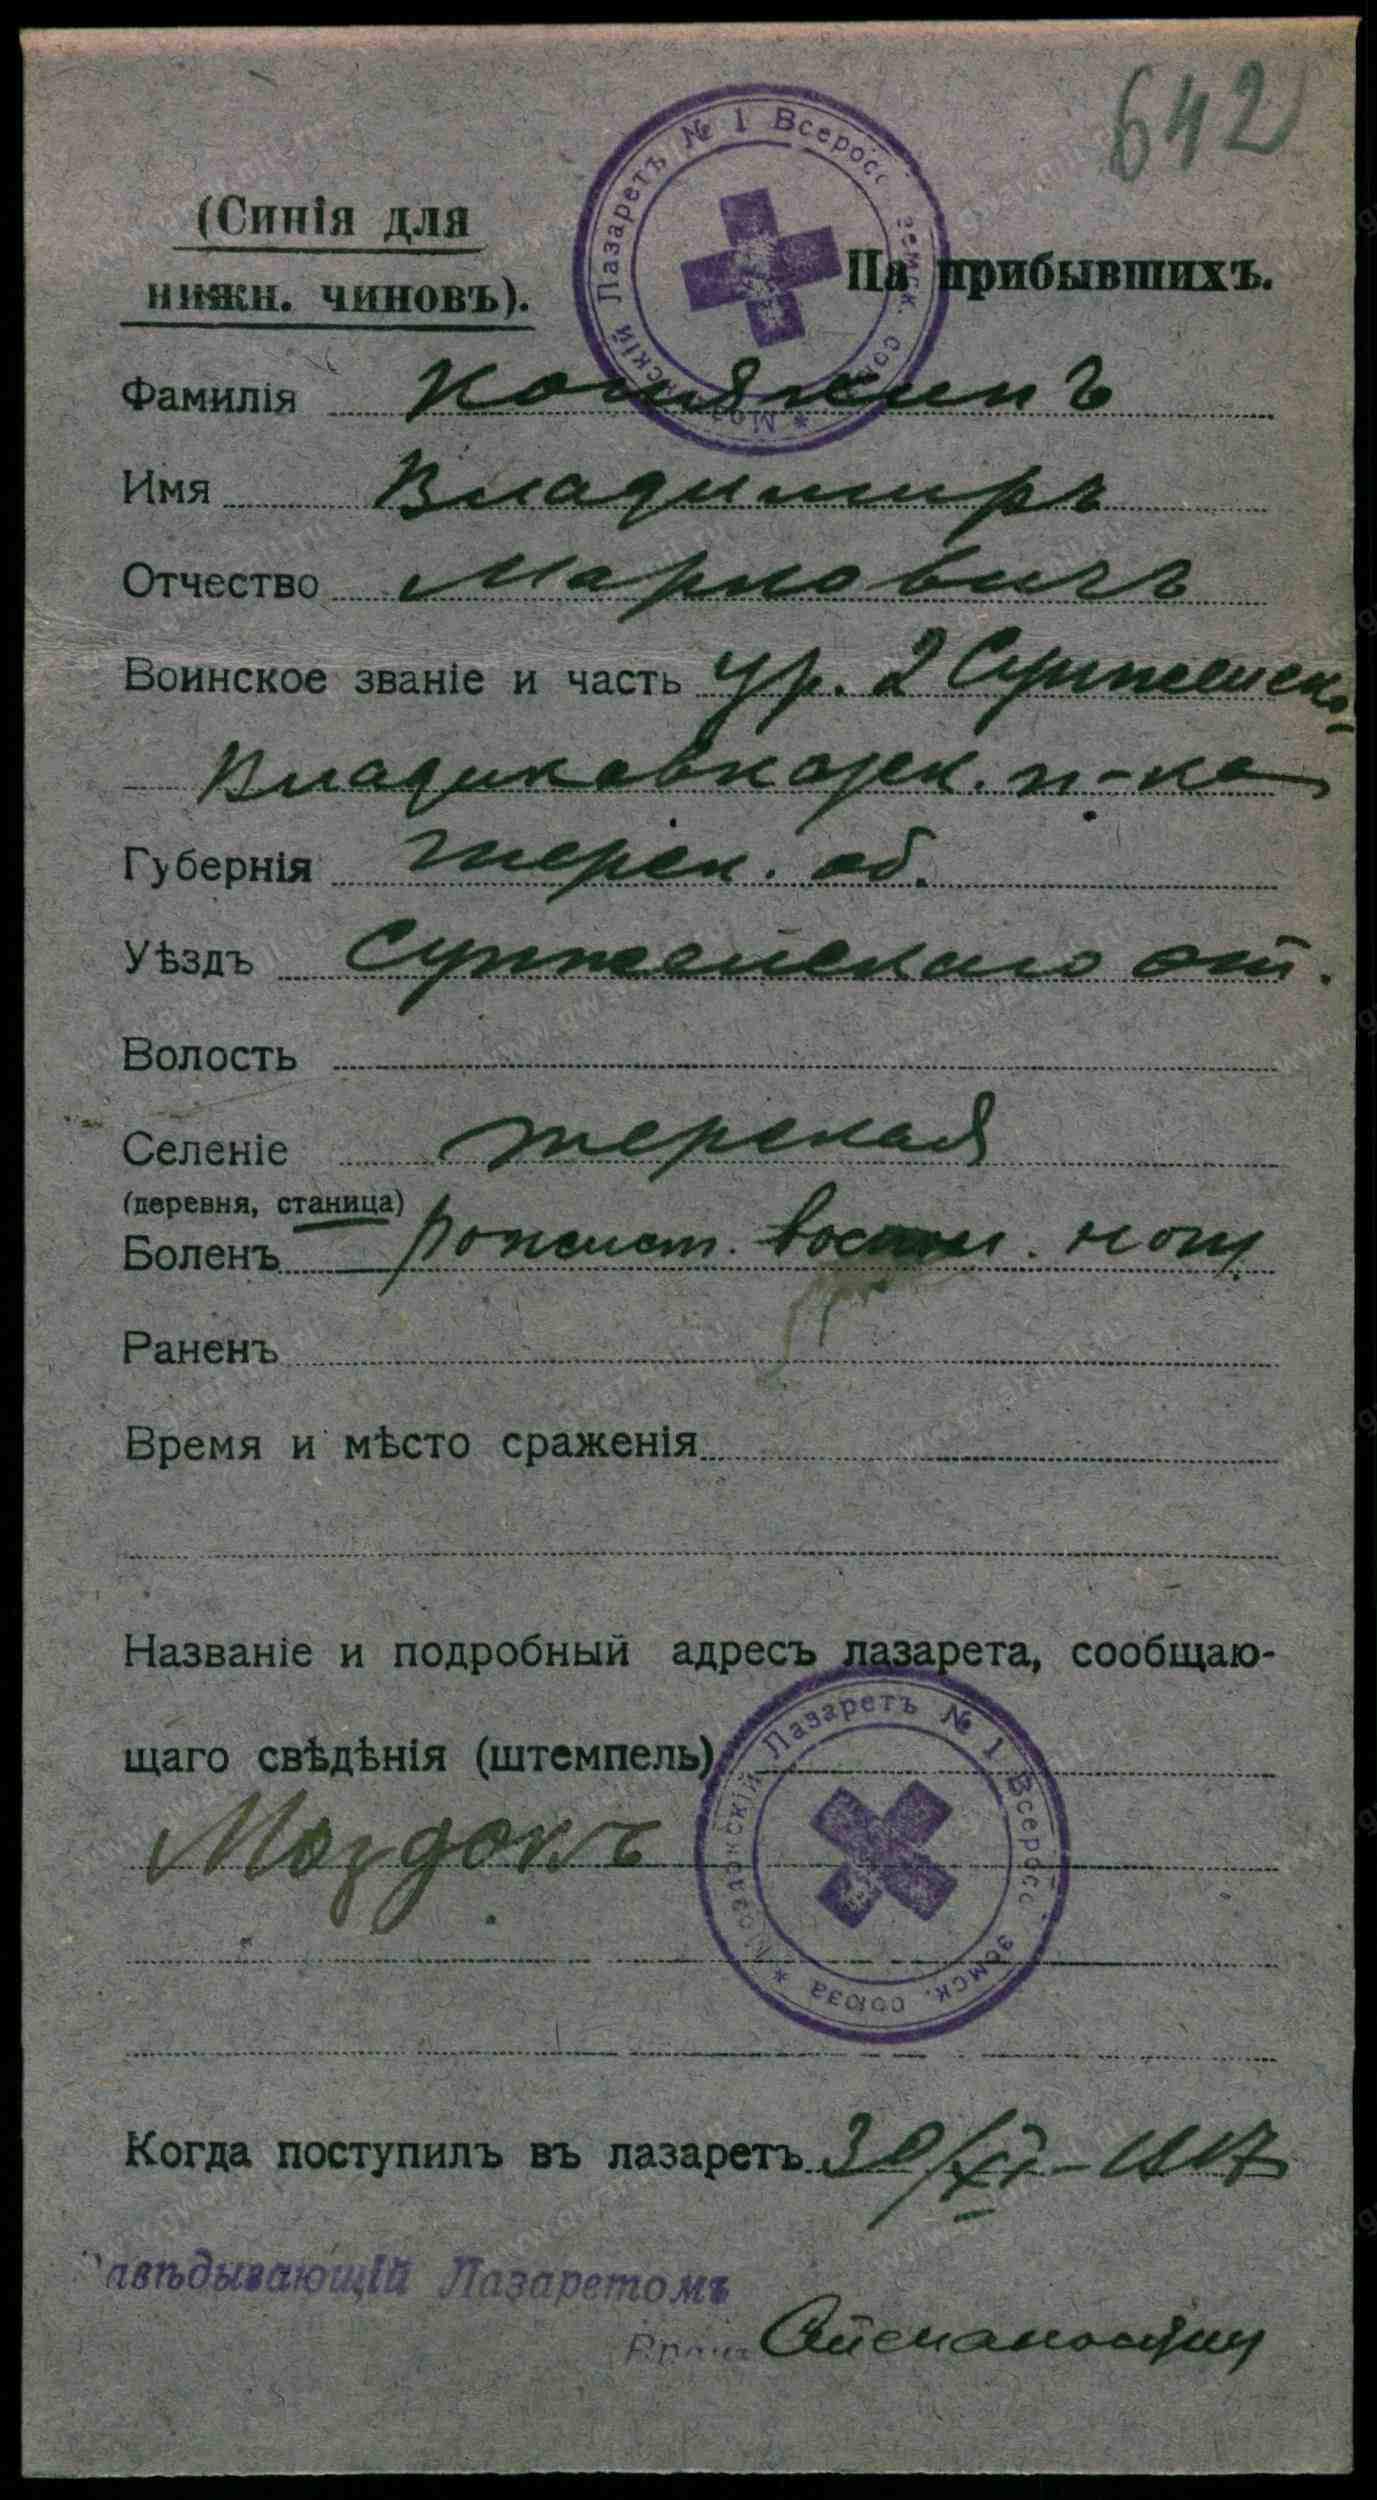 642
Моздокскій Лазаретъ № 1 Всеросс. земск. союза *
(Синія для
нижн. чиновъ).
На прибывшихъ.
Фамилія Котякинъ
Имя Владимиръ
Отчество Марковичъ
Воинское званіе и часть ур. 2 Сунженско-
Владикавказск. п-ка
Губернія Терск. об.
Уѣздъ Сунженскаго от.
Волость
Селеніе Терская
(деревня, станица)
Боленъ рожист. воспал. ноги
Раненъ
Время и мѣсто сраженія
Названіе и подробный адресъ лазарета, сообщаю-
щаго свѣдѣнія (штемпель)
Моздокскій Лазаретъ № 1 Всеросс. земск. союза *
Моздокъ
Когда поступилъ въ лазаретъ 30/XI-1917
Завѣдывающій Лазаретомъ
Врачъ